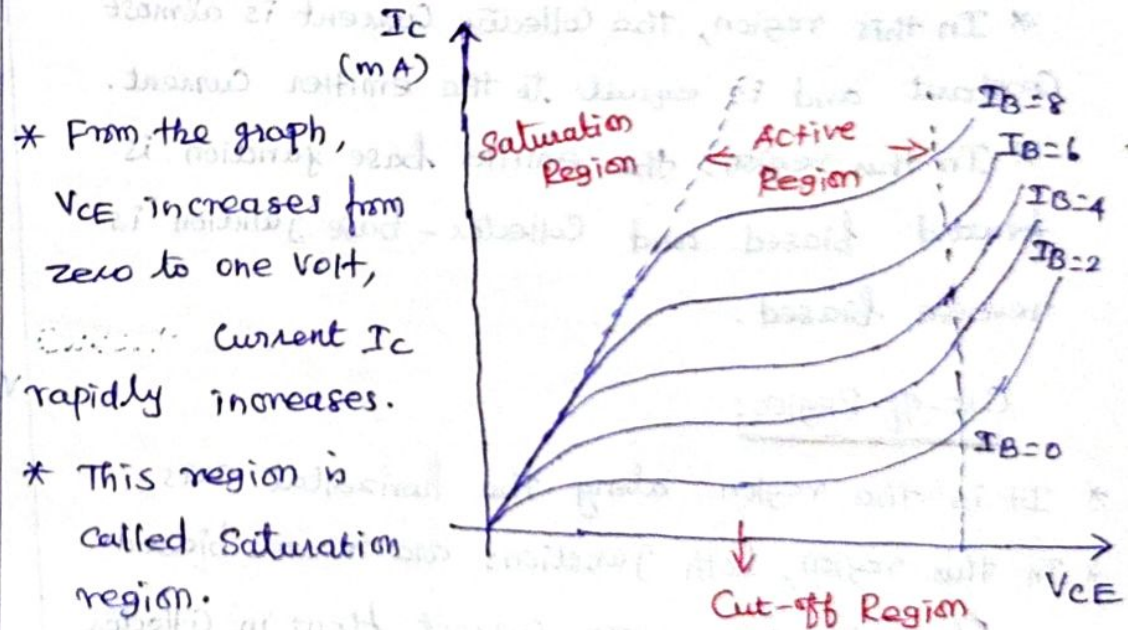 Ic
(mA)
* From the graph,
VCE increases from
zero to one Volt,
Current Ic
rapidly increases.
* This region is
called Saturation
region.
Saturation
Region
Active
Region
IB=8
IB=6
IB=4
IB=2
IB=0
VCE
Cut-off Region